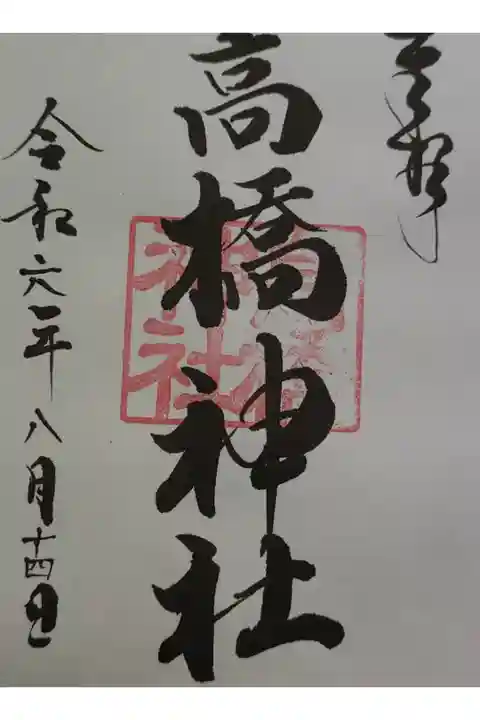 奉拝
高橋神社
令和六年八月十四日
高橋
神社